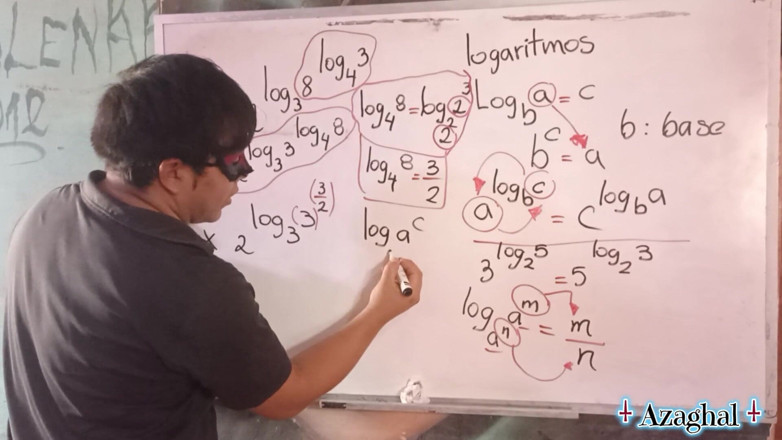 LENKA
2012
logaritmos
log_3 8^(log_4 3)
log_3 3^(log_4 8)
2^(log_3 (3)^(3/2))
log_4 8 = log_(2^2) 2^3
log_4 8 = 3/2
log a^c
Log_b a = c
b^c = a
b : base
a^(log_b c) = c^(log_b a)
3^(log_2 5) = 5^(log_2 3)
log_(a^n) a^m = m/n
Azaghal